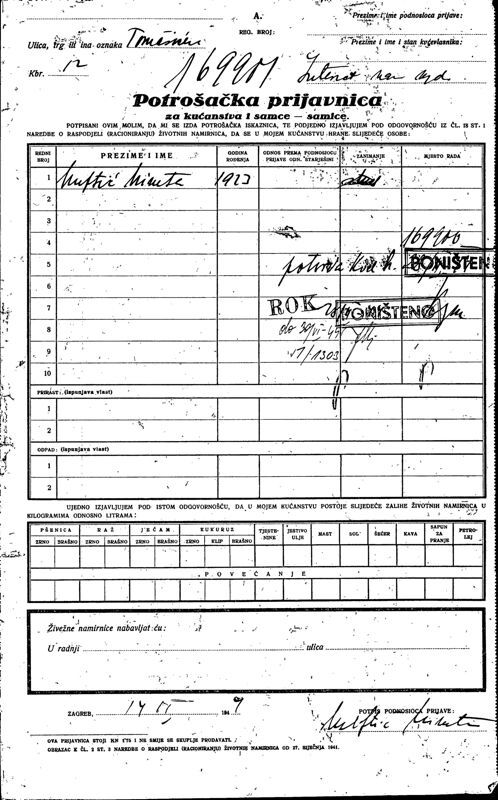 A.
Prezime i ime podnosioca prijave:
REG. BROJ:
Ulica, trg ili ina oznaka
Prezime i ime i stan kućevlasnika:
Kbr. 12
169901
Potrošačka prijavnica
za kućanstva i samce — samice.
POTPISANI OVIM MOLIM, DA MI SE IZDA POTROŠAČKA ISKAZNICA, TE PODJEDNO IZJAVLJUJEM POD ODGOVORNOŠĆU IZ ČL. 15 ST. 1
NAREDBE O RASPODJELI (RACIONIRANJU) ŽIVOTNIH NAMIRNICA, DA SE U MOJEM KUĆANSTVU HRANE SLIJEDEĆE OSOBE:
REDNI BROJ PREZIME I IME GODINA ROĐENJA ODNOS PREMA PODNOSIOCU PRIJAVE ODN. STARJEŠINI ZANIMANJE MJESTO RADA
1 Muftić 1923
2
3
4 169900
5 PONIŠTENO
6
7 ROK PONIŠTENO
8 do 30/VI-49
9 VI/1303
10
PRIRAST: (ispunjava vlast)
1
2
OTPAD: (ispunjava vlast)
1
2
UJEDNO IZJAVLJUJEM POD ISTOM ODGOVORNOŠĆU, DA U MOJEM KUĆANSTVU POSTOJE SLIJEDEĆE ZALIHE ŽIVOTNIH NAMIRNICA U
KILOGRAMIMA ODNOSNO LITRAMA:
PŠENICA RAŽ JEČAM KUKURUZ TJESTENINE JESTIVO ULJE MAST SOL ŠEĆER KAVA SAPUN ZA PRANJE PETROLEJ
ZRNO BRAŠNO ZRNO BRAŠNO ZRNO BRAŠNO ZRNO KLIP BRAŠNO
POVEĆANJE
Živežne namirnice nabavljat ću:
U radnji ulica
ZAGREB, 14 VI 1949
POTPIS PODNOSIOCA PRIJAVE:
Muftić
OVA PRIJAVNICA STOJI KN 1.75 I NE SMIJE SE SKUPLJE PRODAVATI.
OBRAZAC K ČL. 2 ST. 3 NAREDBE O RASPODJELI (RACIONIRANJU) ŽIVOTNIH NAMIRNICA OD 27. SIJEČNJA 1941.